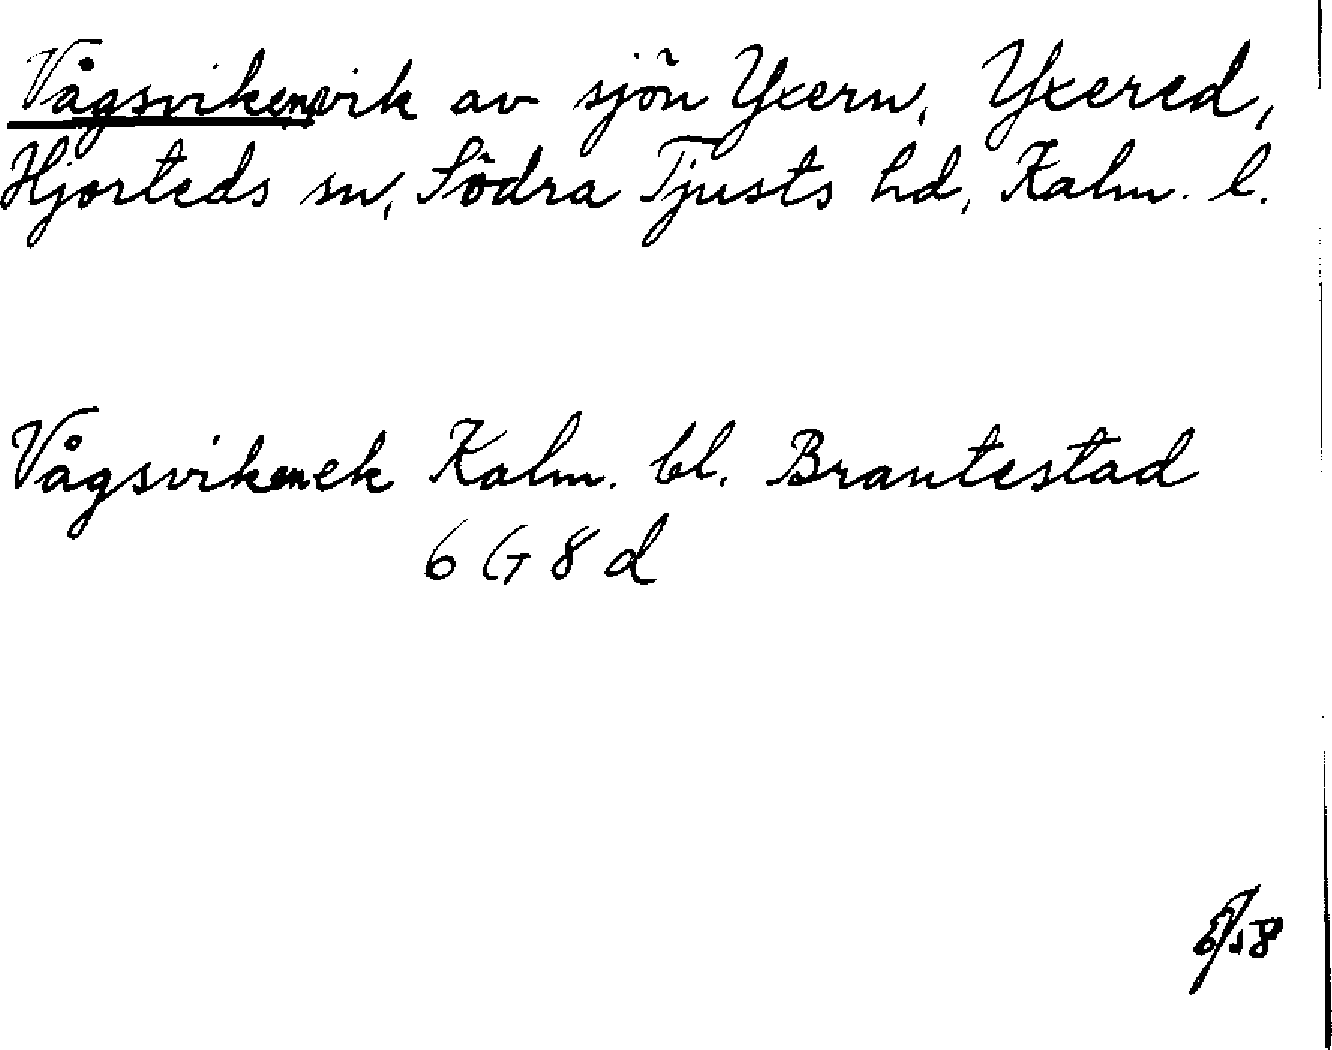 Vågsviken vik av sjön Yxern, Yxered,
Hjorteds sn, Södra Tjusts hd, Kalm. l.
Vågsviken ek Kalm. bl. Brantestad
6 G 8 d